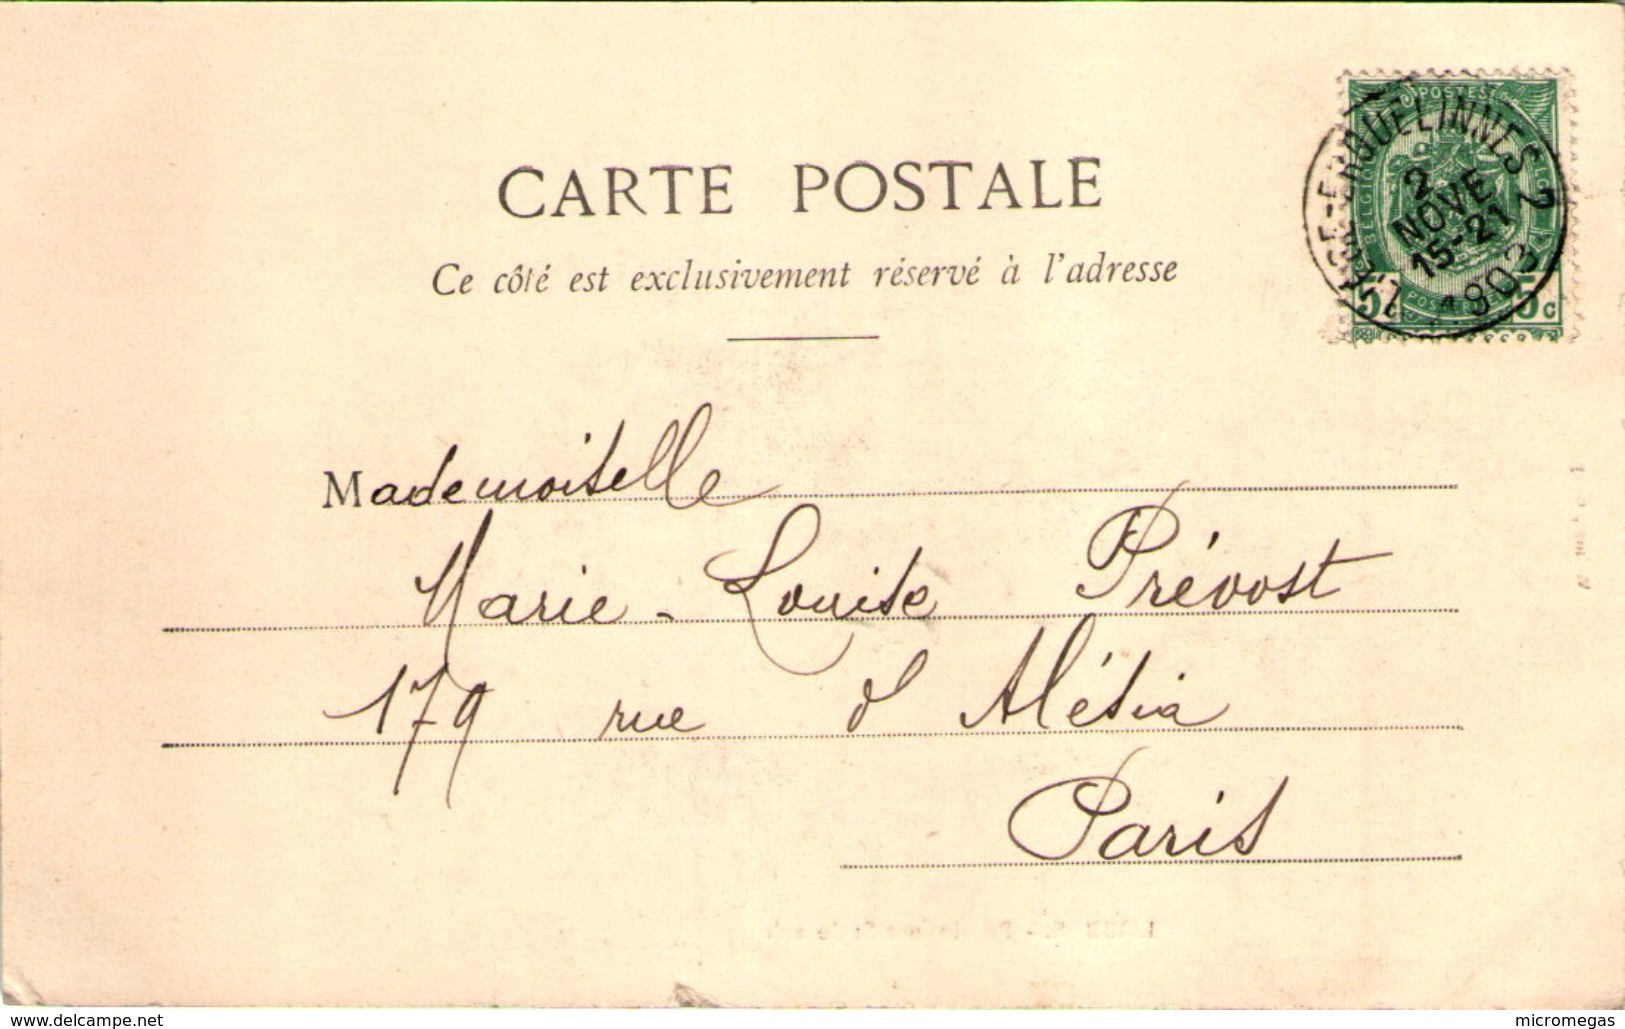 CARTE POSTALE
Ce côté est exclusivement réservé à l'adresse
POSTES
BELGIQUE
5 5c
LIÉGE-ERQUELINNES 2
2
NOVE
15-21
1903
Mademoiselle
Marie-Louise Prévost
179 rue d'Alésia
Paris
www.delcampe.net
micromegas